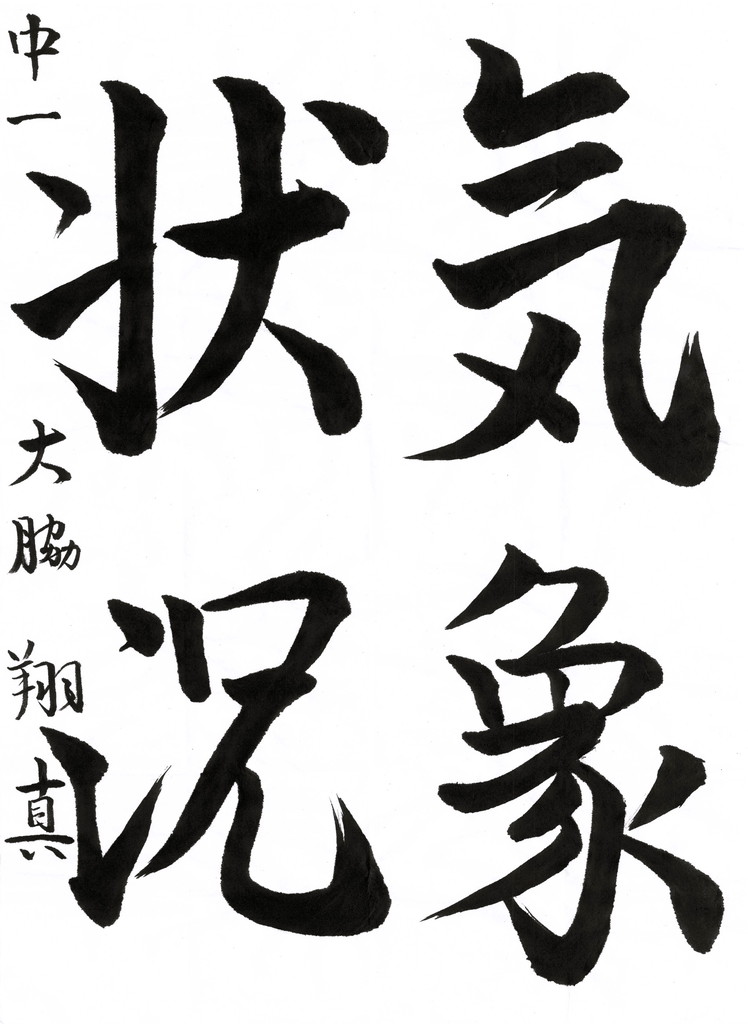 気象
状況
中一 大脇 翔真